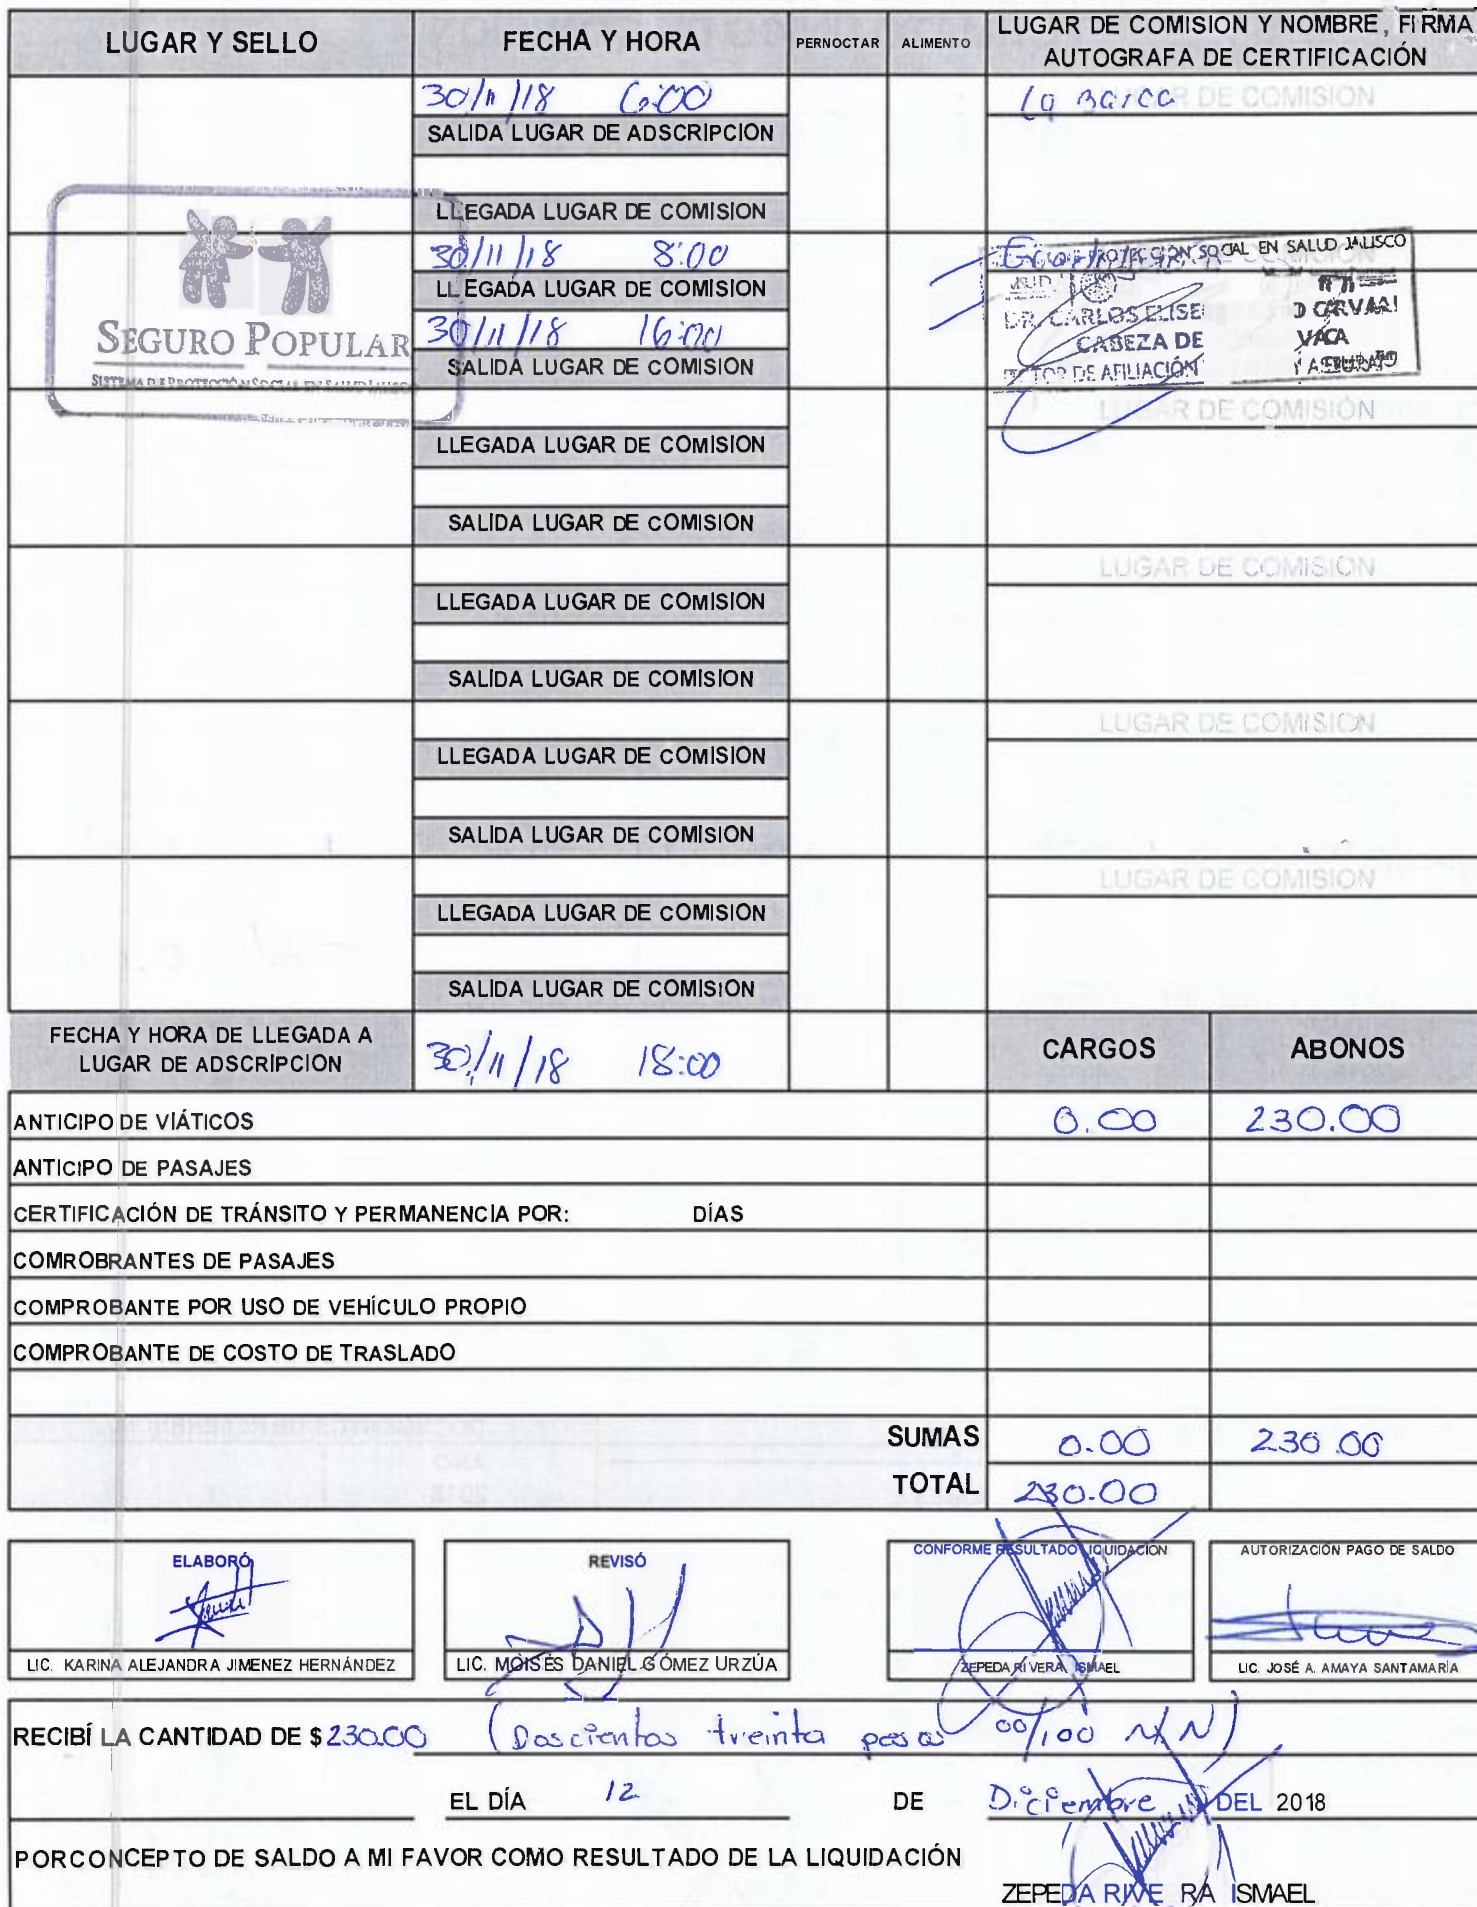 LUGAR Y SELLO FECHA Y HORA PERNOCTAR ALIMENTO LUGAR DE COMISION Y NOMBRE, FIRMA
AUTOGRAFA DE CERTIFICACIÓN
30/11/18 6:00 La Barca LUGAR DE COMISION
SALIDA LUGAR DE ADSCRIPCION
LLEGADA LUGAR DE COMISION
30/11/18 8:00
LLEGADA LUGAR DE COMISION
30/11/18 16:00
SALIDA LUGAR DE COMISION
SEGURO POPULAR
SISTEMA DE PROTECCIÓN SOCIAL EN SALUD JALISCO
PROTECCIÓN SOCIAL EN SALUD JALISCO
DR. CARLOS ELISE
CABEZA DE VACA
DE AFILIACIÓN
LUGAR DE COMISIÓN
LLEGADA LUGAR DE COMISION
SALIDA LUGAR DE COMISION
LUGAR DE COMISION
LLEGADA LUGAR DE COMISION
SALIDA LUGAR DE COMISION
LUGAR DE COMISION
LLEGADA LUGAR DE COMISION
SALIDA LUGAR DE COMISION
LUGAR DE COMISION
LLEGADA LUGAR DE COMISION
SALIDA LUGAR DE COMISION
FECHA Y HORA DE LLEGADA A
LUGAR DE ADSCRIPCION
30/11/18 18:00 CARGOS ABONOS
ANTICIPO DE VIÁTICOS 0.00 230.00
ANTICIPO DE PASAJES
CERTIFICACIÓN DE TRÁNSITO Y PERMANENCIA POR: DÍAS
COMROBRANTES DE PASAJES
COMPROBANTE POR USO DE VEHÍCULO PROPIO
COMPROBANTE DE COSTO DE TRASLADO
SUMAS 0.00 230.00
TOTAL 230.00
ELABORÓ
LIC. KARINA ALEJANDRA JIMENEZ HERNÁNDEZ
REVISÓ
LIC. MOISÉS DANIEL GÓMEZ URZÚA
CONFORME RESULTADO LIQUIDACION
ZEPEDA RIVERA ISMAEL
AUTORIZACIÓN PAGO DE SALDO
LIC. JOSÉ A. AMAYA SANTAMARÍA
RECIBÍ LA CANTIDAD DE $ 230.00 (Doscientos treinta pesos 00/100 M/N)
EL DÍA 12 DE Diciembre DEL 2018
PORCONCEPTO DE SALDO A MI FAVOR COMO RESULTADO DE LA LIQUIDACIÓN
ZEPEDA RIVE RA ISMAEL